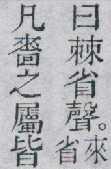 曰棘省聲。來
省
凡嗇之屬皆